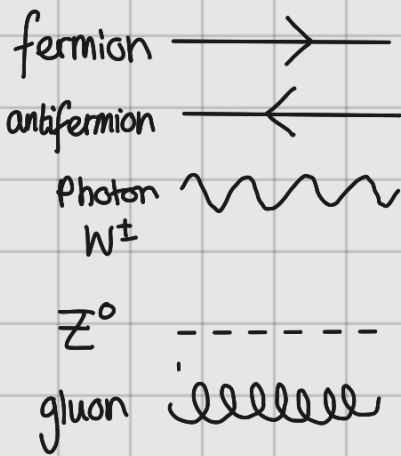 fermion
antifermion
Photon
W±
Z⁰
gluon